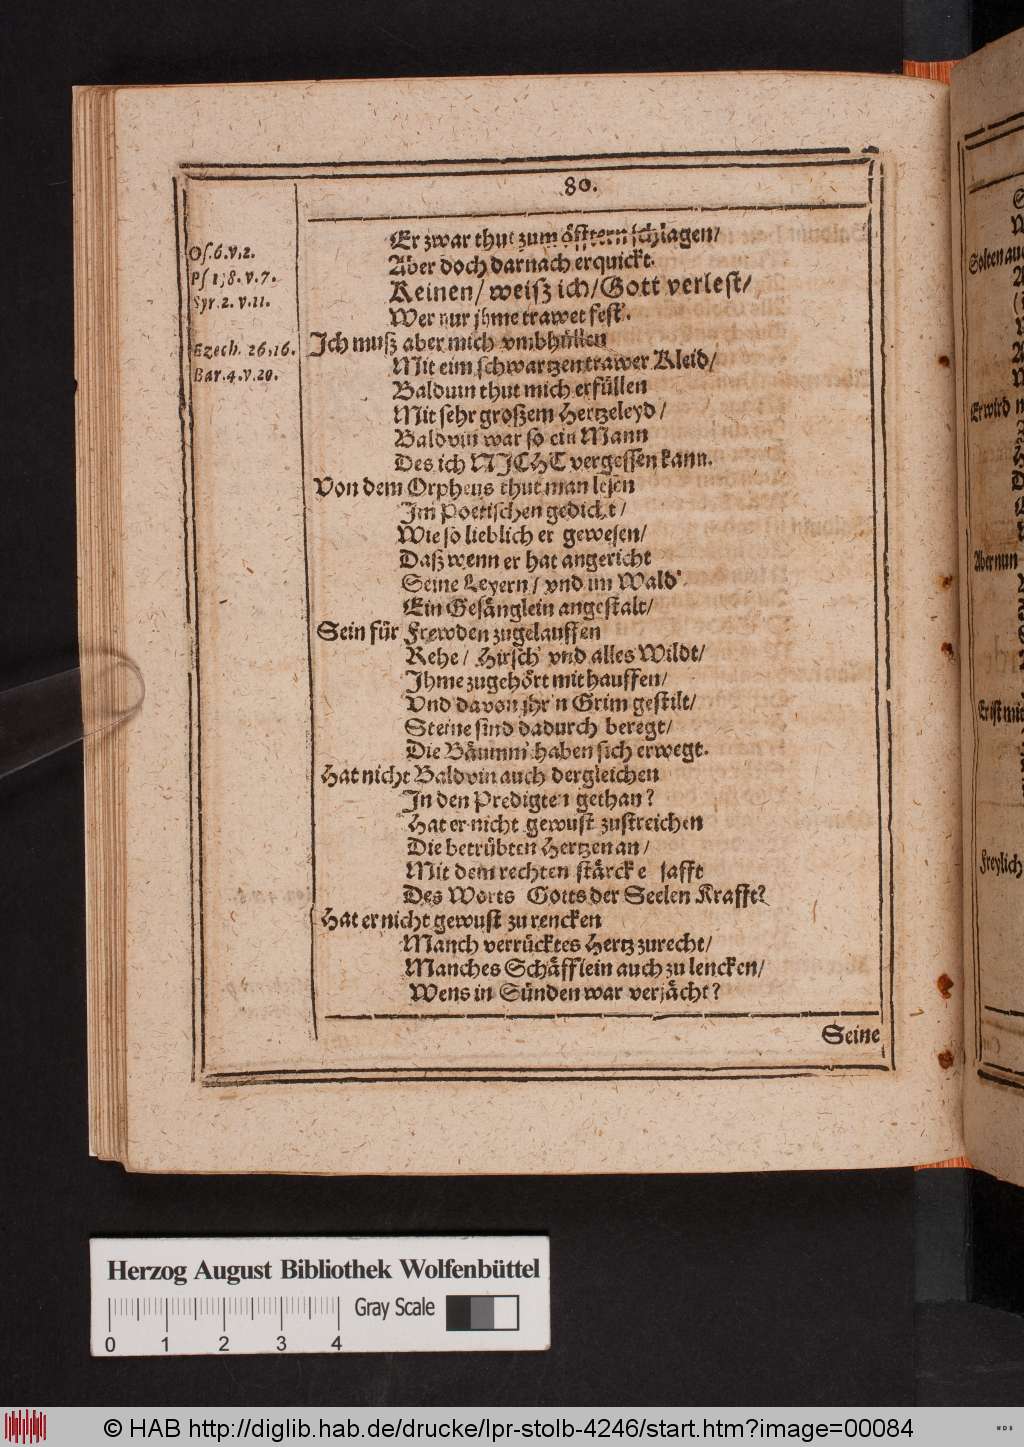 80.
Os. 6. v. 2.
Ps 138. v. 7.
Syr. 2. v. 11.
Ezech. 26, 16.
Bar. 4. v. 20.
Er zwar thut zum öfftern schlagen/
Aber doch darnach erquickt.
Keinen/ weisz ich/ Gott verlest/
Wer nur jhme trawet fest'.
Ich muß aber mich vmbhüllen
Mit eim schwartzen trawer Kleid/
Balduin thut mich erfüllen
Mit sehr großem Hertzeleyd/
Baldvin war so ein Mann
Des ich NICHT vergessen kann.
Von dem Orpheus thut man lesen
Im Poetischen gedicht/
Wie so lieblich er gewesen/
Daß wenn er hat angericht
Seine Leyern/ vnd im Wald'
Ein Gesänglein angestalt/
Sein für Frewden zugelauffen
Rehe/ Hirsch' vnd alles Wildt/
Jhme zugehört mit hauffen/
Vnd davon jhr'n Grim gestilt/
Steine sind dadurch beregt/
Die Bäumm' haben sich erwegt.
Hat nicht Baldvin auch dergleichen
In den Predigten gethan?
Hat er nicht gewust zustreichen
Die betrübten Hertzen an/
Mit dem rechten stärcke safft
Des Worts Gotts der Seelen Krafft?
Hat er nicht gewust zu rencken
Manch verrücktes Hertz zurecht/
Manches Schäfflein auch zu lencken/
Wens in Sünden war verjächt?
Seine
Solten auch
Er wird
Aber nun
Er ist mit
Freylich
Herzog August Bibliothek Wolfenbüttel
Gray Scale
0 1 2 3 4
© HAB http://diglib.hab.de/drucke/lpr-stolb-4246/start.htm?image=00084